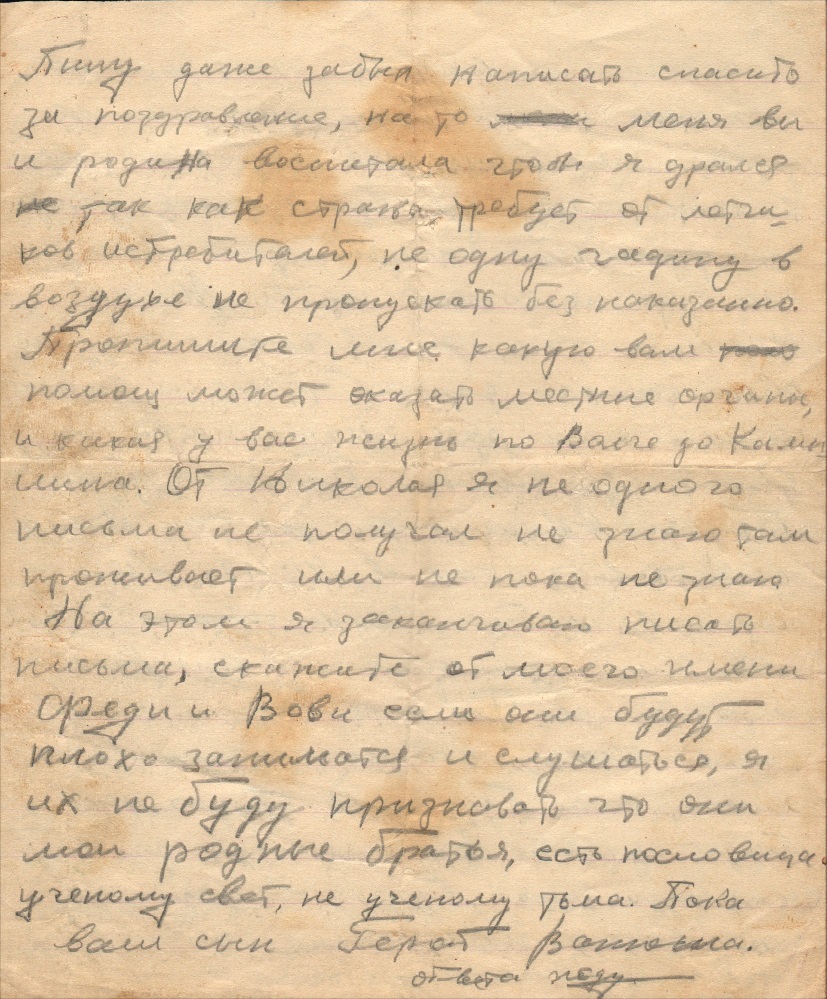 Пишу даже забыл написать спасибо
за поздравление, на то меня вы
и родина воспитала чтоб я дрался
так как страна требует от летчи-
ков истребителей, не одну гадину в
воздухе не пропускать без наказанно.
Пропишите мне какую вам
помощ может оказать местные органы,
и какая у вас жизнь по Волге до Камы
шина. От Николая я не одного
письма не получал не знаю там
проживает или не пока не знаю
На этом я заканчиваю писать
письма, скажите от моего имени
Феди и Вови если они будут
плохо заниматся и слушаться, я
их не буду признавать что они
мои родные братья, есть пословица.
ученому свет, не ученому тьма. Пока
ваш сын Герой Ванюша.
ответа жду